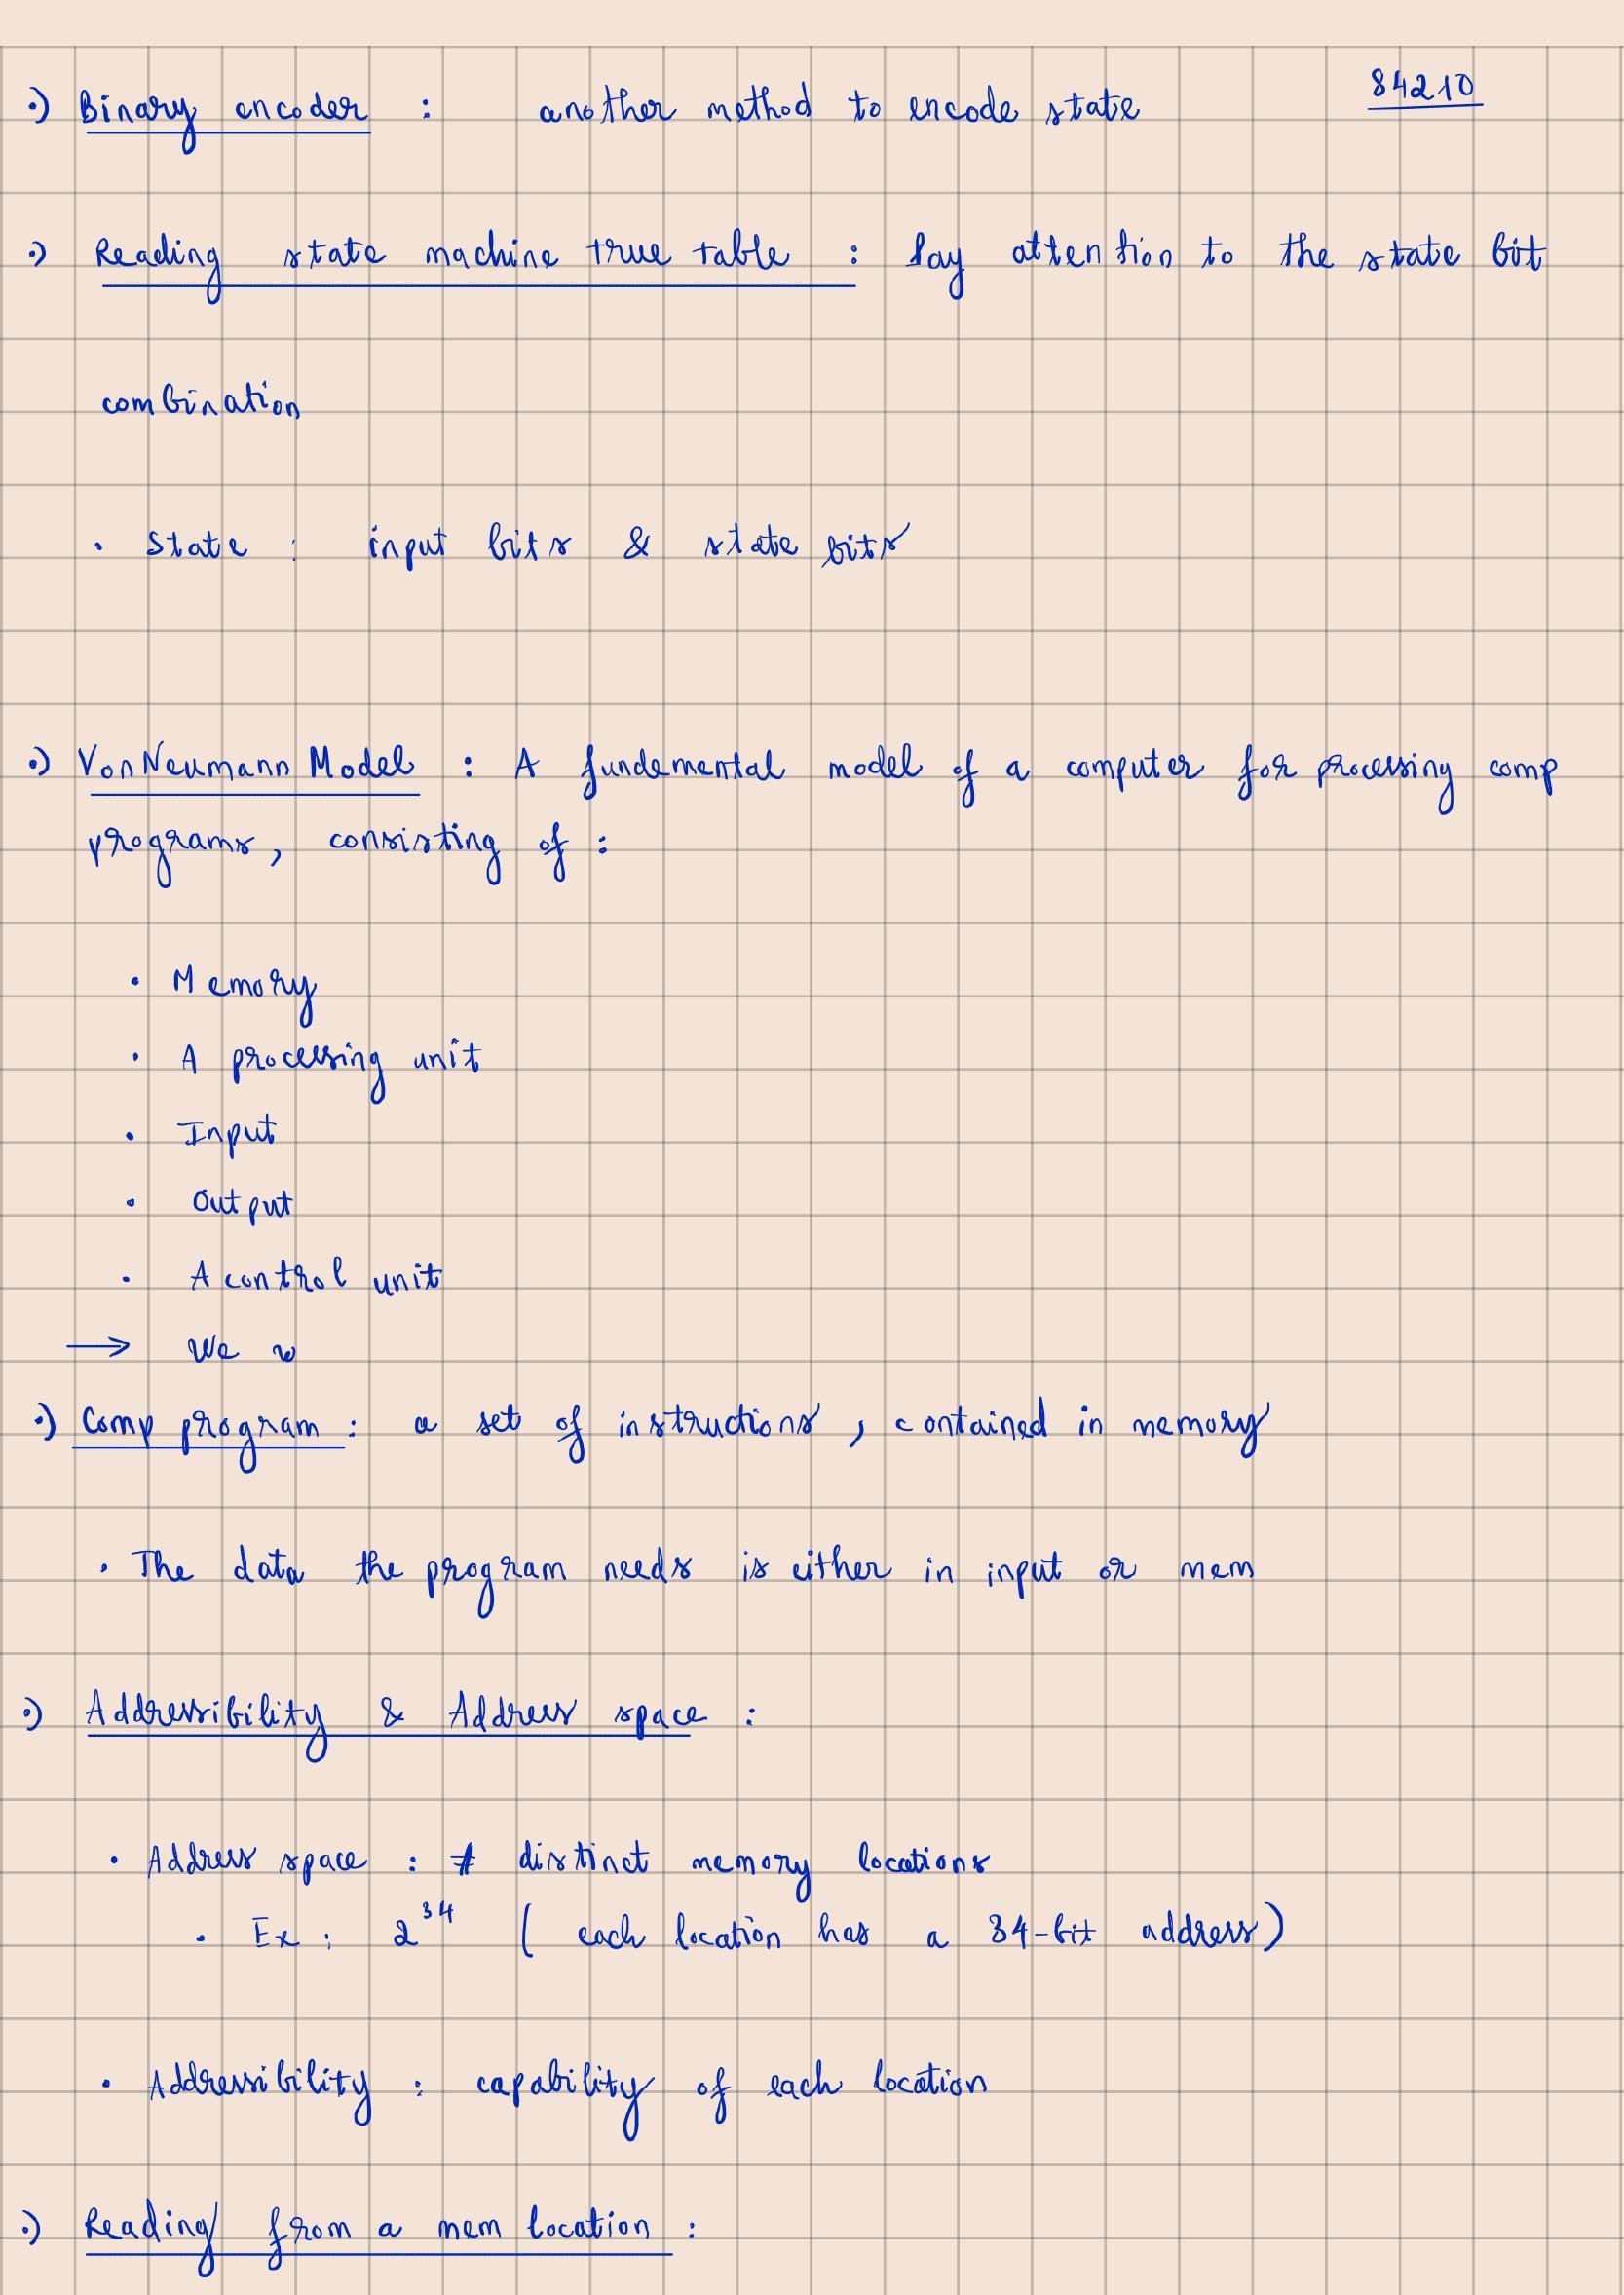 84210
·) Binary encoder : another method to encode state
·) Reading state machine true table : Pay attention to the state bit
combination
· State : input bits & state bits
·) Von Neumann Model : A fundemental model of a computer for processing comp
programs, consisting of :
· Memory
· A processing unit
· Input
· Output
· A control unit
→ We w
·) Comp program : a set of instructions, contained in memory
· The data the program needs is either in input or mem
·) Addressibility & Address space :
· Address space : # distinct memory locations
· Ex : 2^34 ( each location has a 34-bit address)
· Addressibility : capability of each location
·) Reading from a mem location :